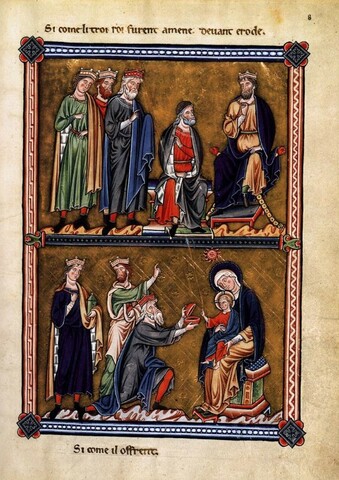 Si come li troi roi furent amene devant erode.
Si come il offrent.